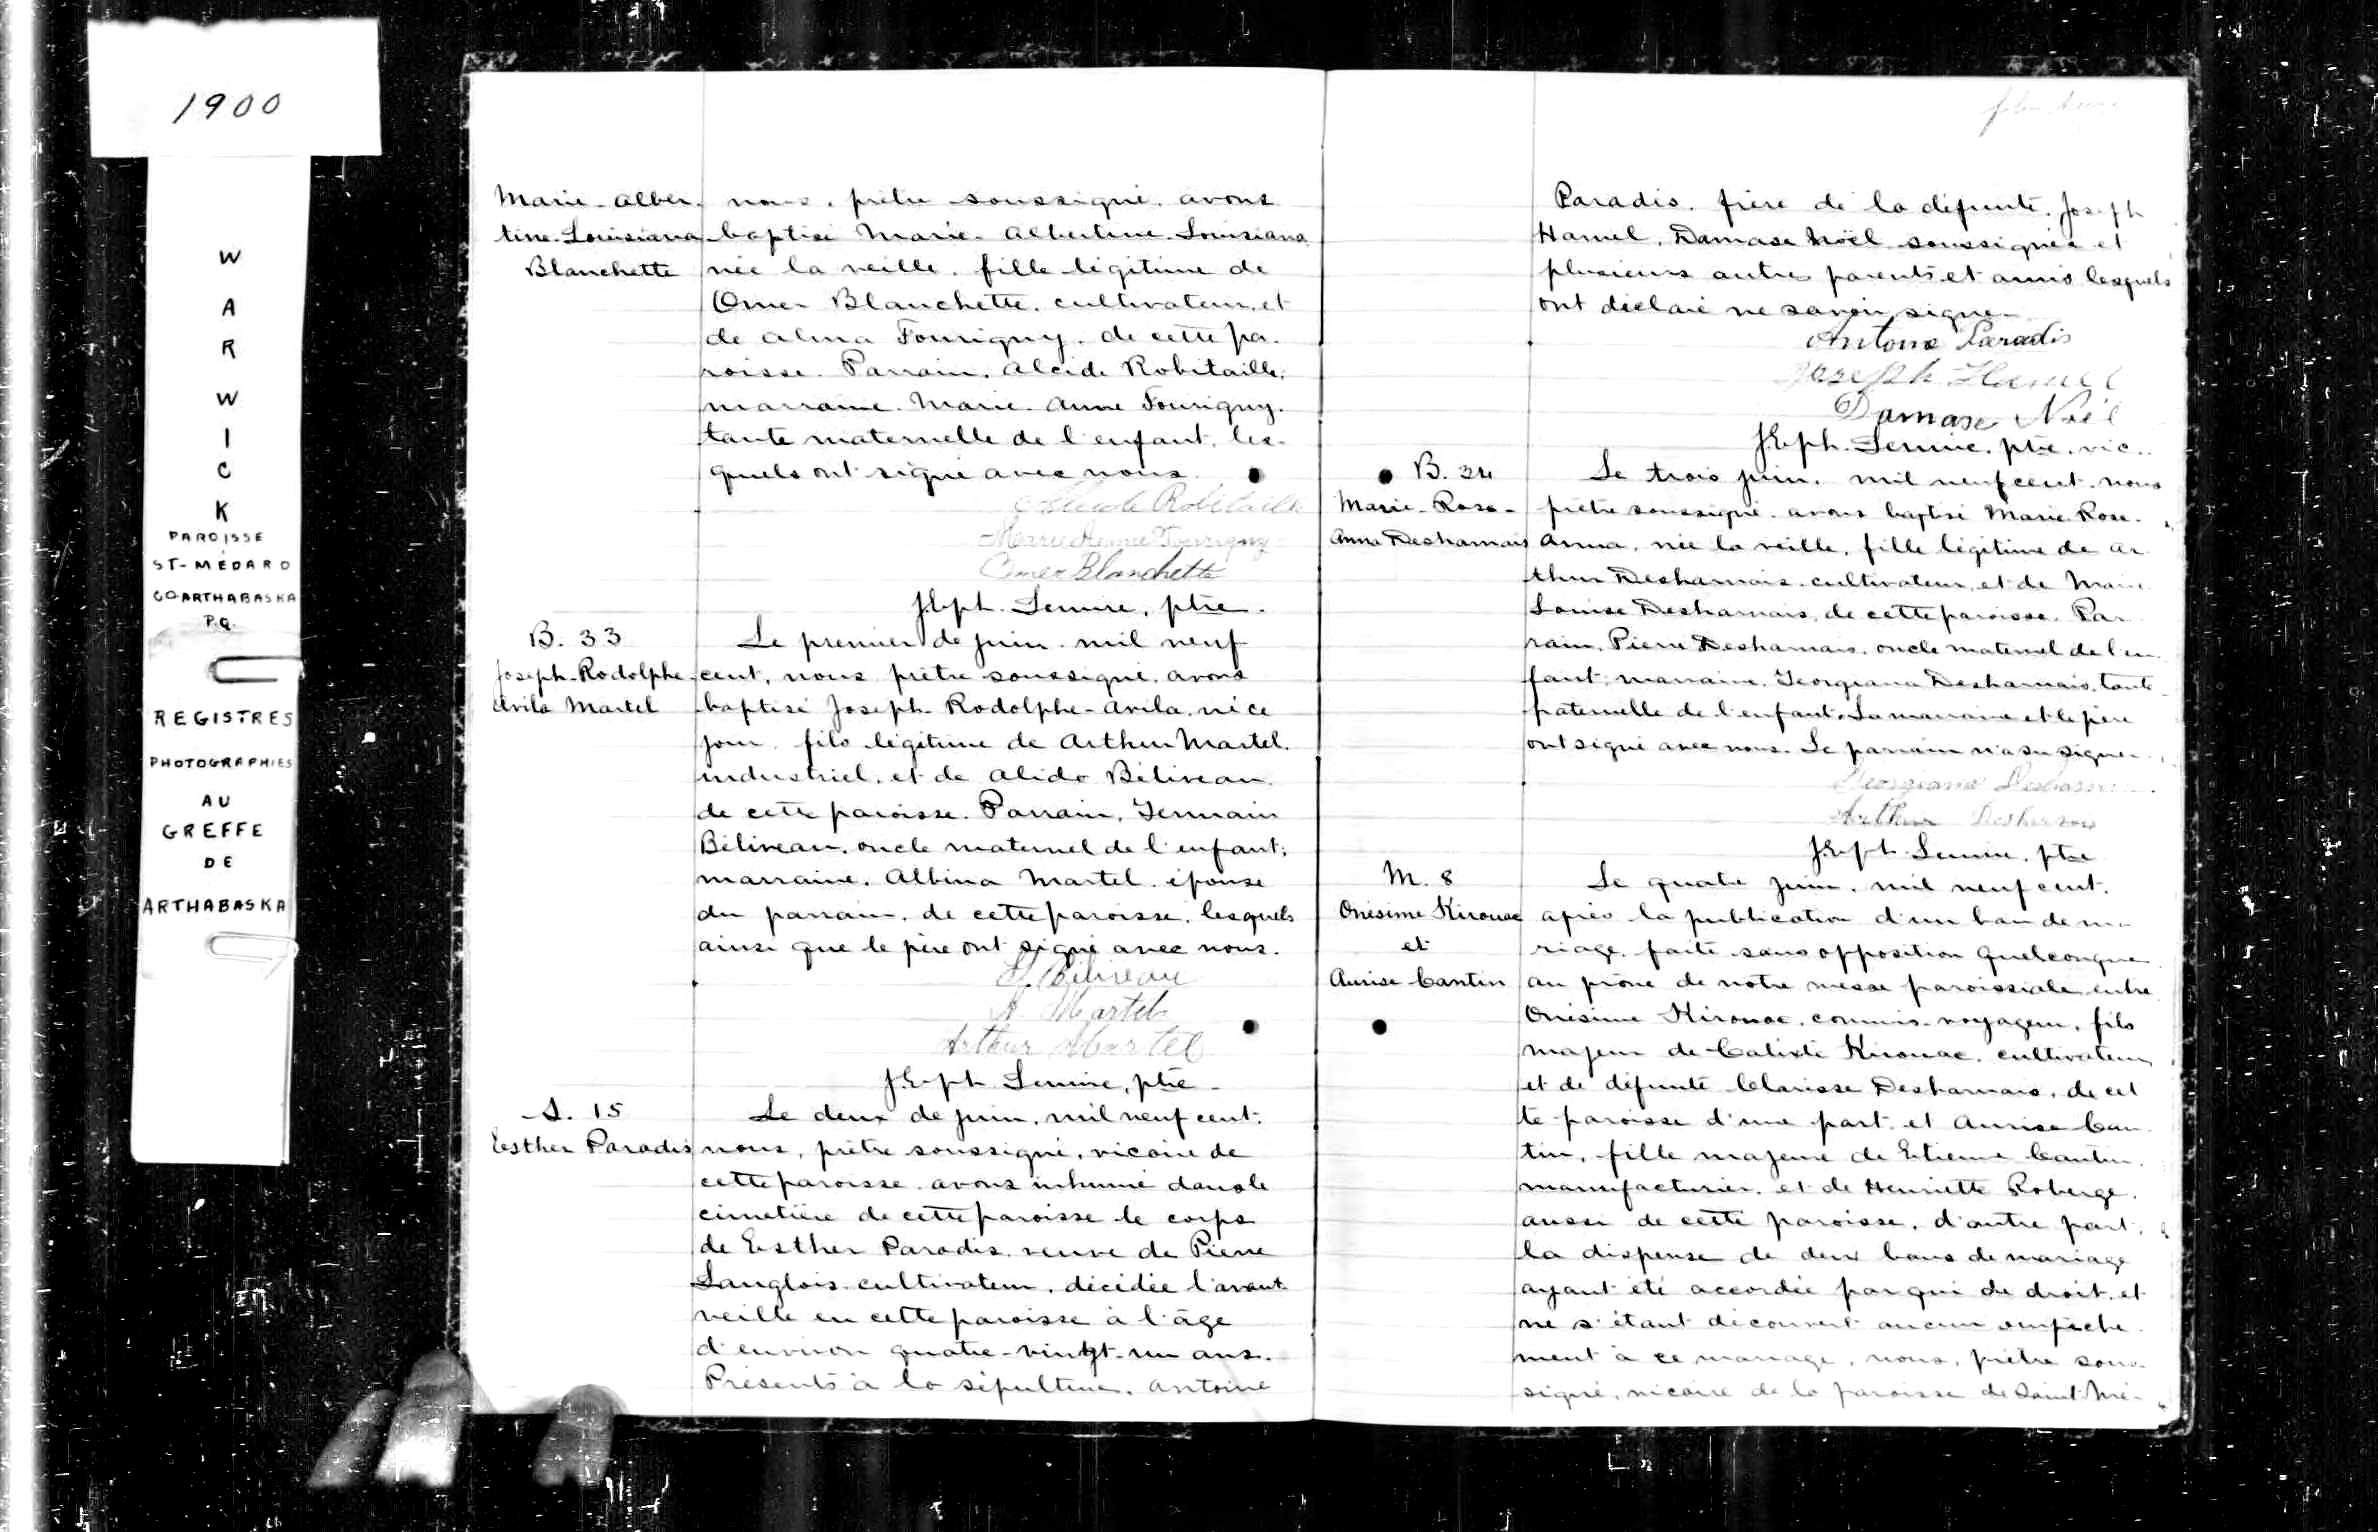 1900
W
A
R
W
I
C
K
PAROISSE
ST-MÉDARD
CO ARTHABASKA
P.Q.
REGISTRES
PHOTOGRAPHIES
AU
GREFFE
DE
ARTHABASKA
Marie-Alber-
tine-Louisiana
Blanchette
nous, prêtre soussigné, avons
baptisé Marie-Albertine-Louisiana
née la veille, fille légitime de
Omer Blanchette, cultivateur, et
de Alma Tourigny, de cette pa-
roisse. Parrain, Alcide Robitaille;
marraine, Marie-Anne Tourigny,
tante maternelle de l'enfant, les-
quels ont signé avec nous.
Alcide Robitaille
Marie Anne Tourigny
Omer Blanchette
Jseph. Lemire, ptre.
B. 33
Joseph-Rodolphe-
Avila Martel
Le premier de juin, mil neuf
cent, nous prêtre soussigné, avons
baptisé Joseph-Rodolphe-Avila, né ce
jour, fils légitime de Arthur Martel,
industriel, et de Alida Béliveau
de cette paroisse. Parrain, Germain
Béliveau, oncle maternel de l'enfant;
marraine, Albina Martel, épouse
du parrain, de cette paroisse, lesquels
ainsi que le père ont signé avec nous.
G. Béliveau
A. Martel
Arthur Martel
Jseph. Lemire, ptre.
S. 15
Esther Paradis
Le deux de juin, mil neuf cent,
nous, prêtre soussigné, vicaire de
cette paroisse, avons inhumé dans le
cimetière de cette paroisse le corps
de Esther Paradis, veuve de Pierre
Langlois, cultivateur, décédée l'avant
veille en cette paroisse à l'âge
d'environ quatre-vingt-un ans.
Présents à la sépulture, Antoine
Paradis, frère de la défunte, Joseph
Hamel, Damase Noël soussignés et
plusieurs autres parents et amis lesquels
ont déclaré ne savoir signer.
Antoine Paradis
Joseph Hamel
Damase Noël
Jseph. Lemire, ptre. vic.
B. 34
Marie-Rose-
Anna Desharnais
Le trois juin, mil neuf cent, nous
prêtre soussigné, avons baptisé Marie-Rose-
Anna, née la veille, fille légitime de Ar
thur Desharnais, cultivateur, et de Marie
Louise Desharnais, de cette paroisse. Par
rain, Pierre Desharnais, oncle maternel de l'en
fant; marraine, Georgiana Desharnais, tante
paternelle de l'enfant. La marraine et le père
ont signé avec nous. Le parrain n'a su signer.
Georgiana Desharnais
Arthur Desharnais
Jseph. Lemire, ptre
M. 8
Onésime Kirouac
et
Aurise Cantin
Le quatre juin, mil neuf cent,
après la publication d'un ban de ma
riage, faite sans opposition quelconque
au prône de notre messe paroissiale entre
Onésime Kirouac, commis-voyageur, fils
majeur de Calixte Kirouac, cultivateur
et de défunte Clarisse Desharnais, de cet
te paroisse d'une part, et Aurise Can
tin, fille majeure de Etienne Cantin,
manufacturier, et de Henriette Roberge,
aussi de cette paroisse, d'autre part;
la dispense de deux bans de mariage
ayant été accordée par qui de droit, et
ne s'étant découvert aucun empêche
ment à ce mariage, nous, prêtre sous-
signé, vicaire de la paroisse de Saint-Mé-